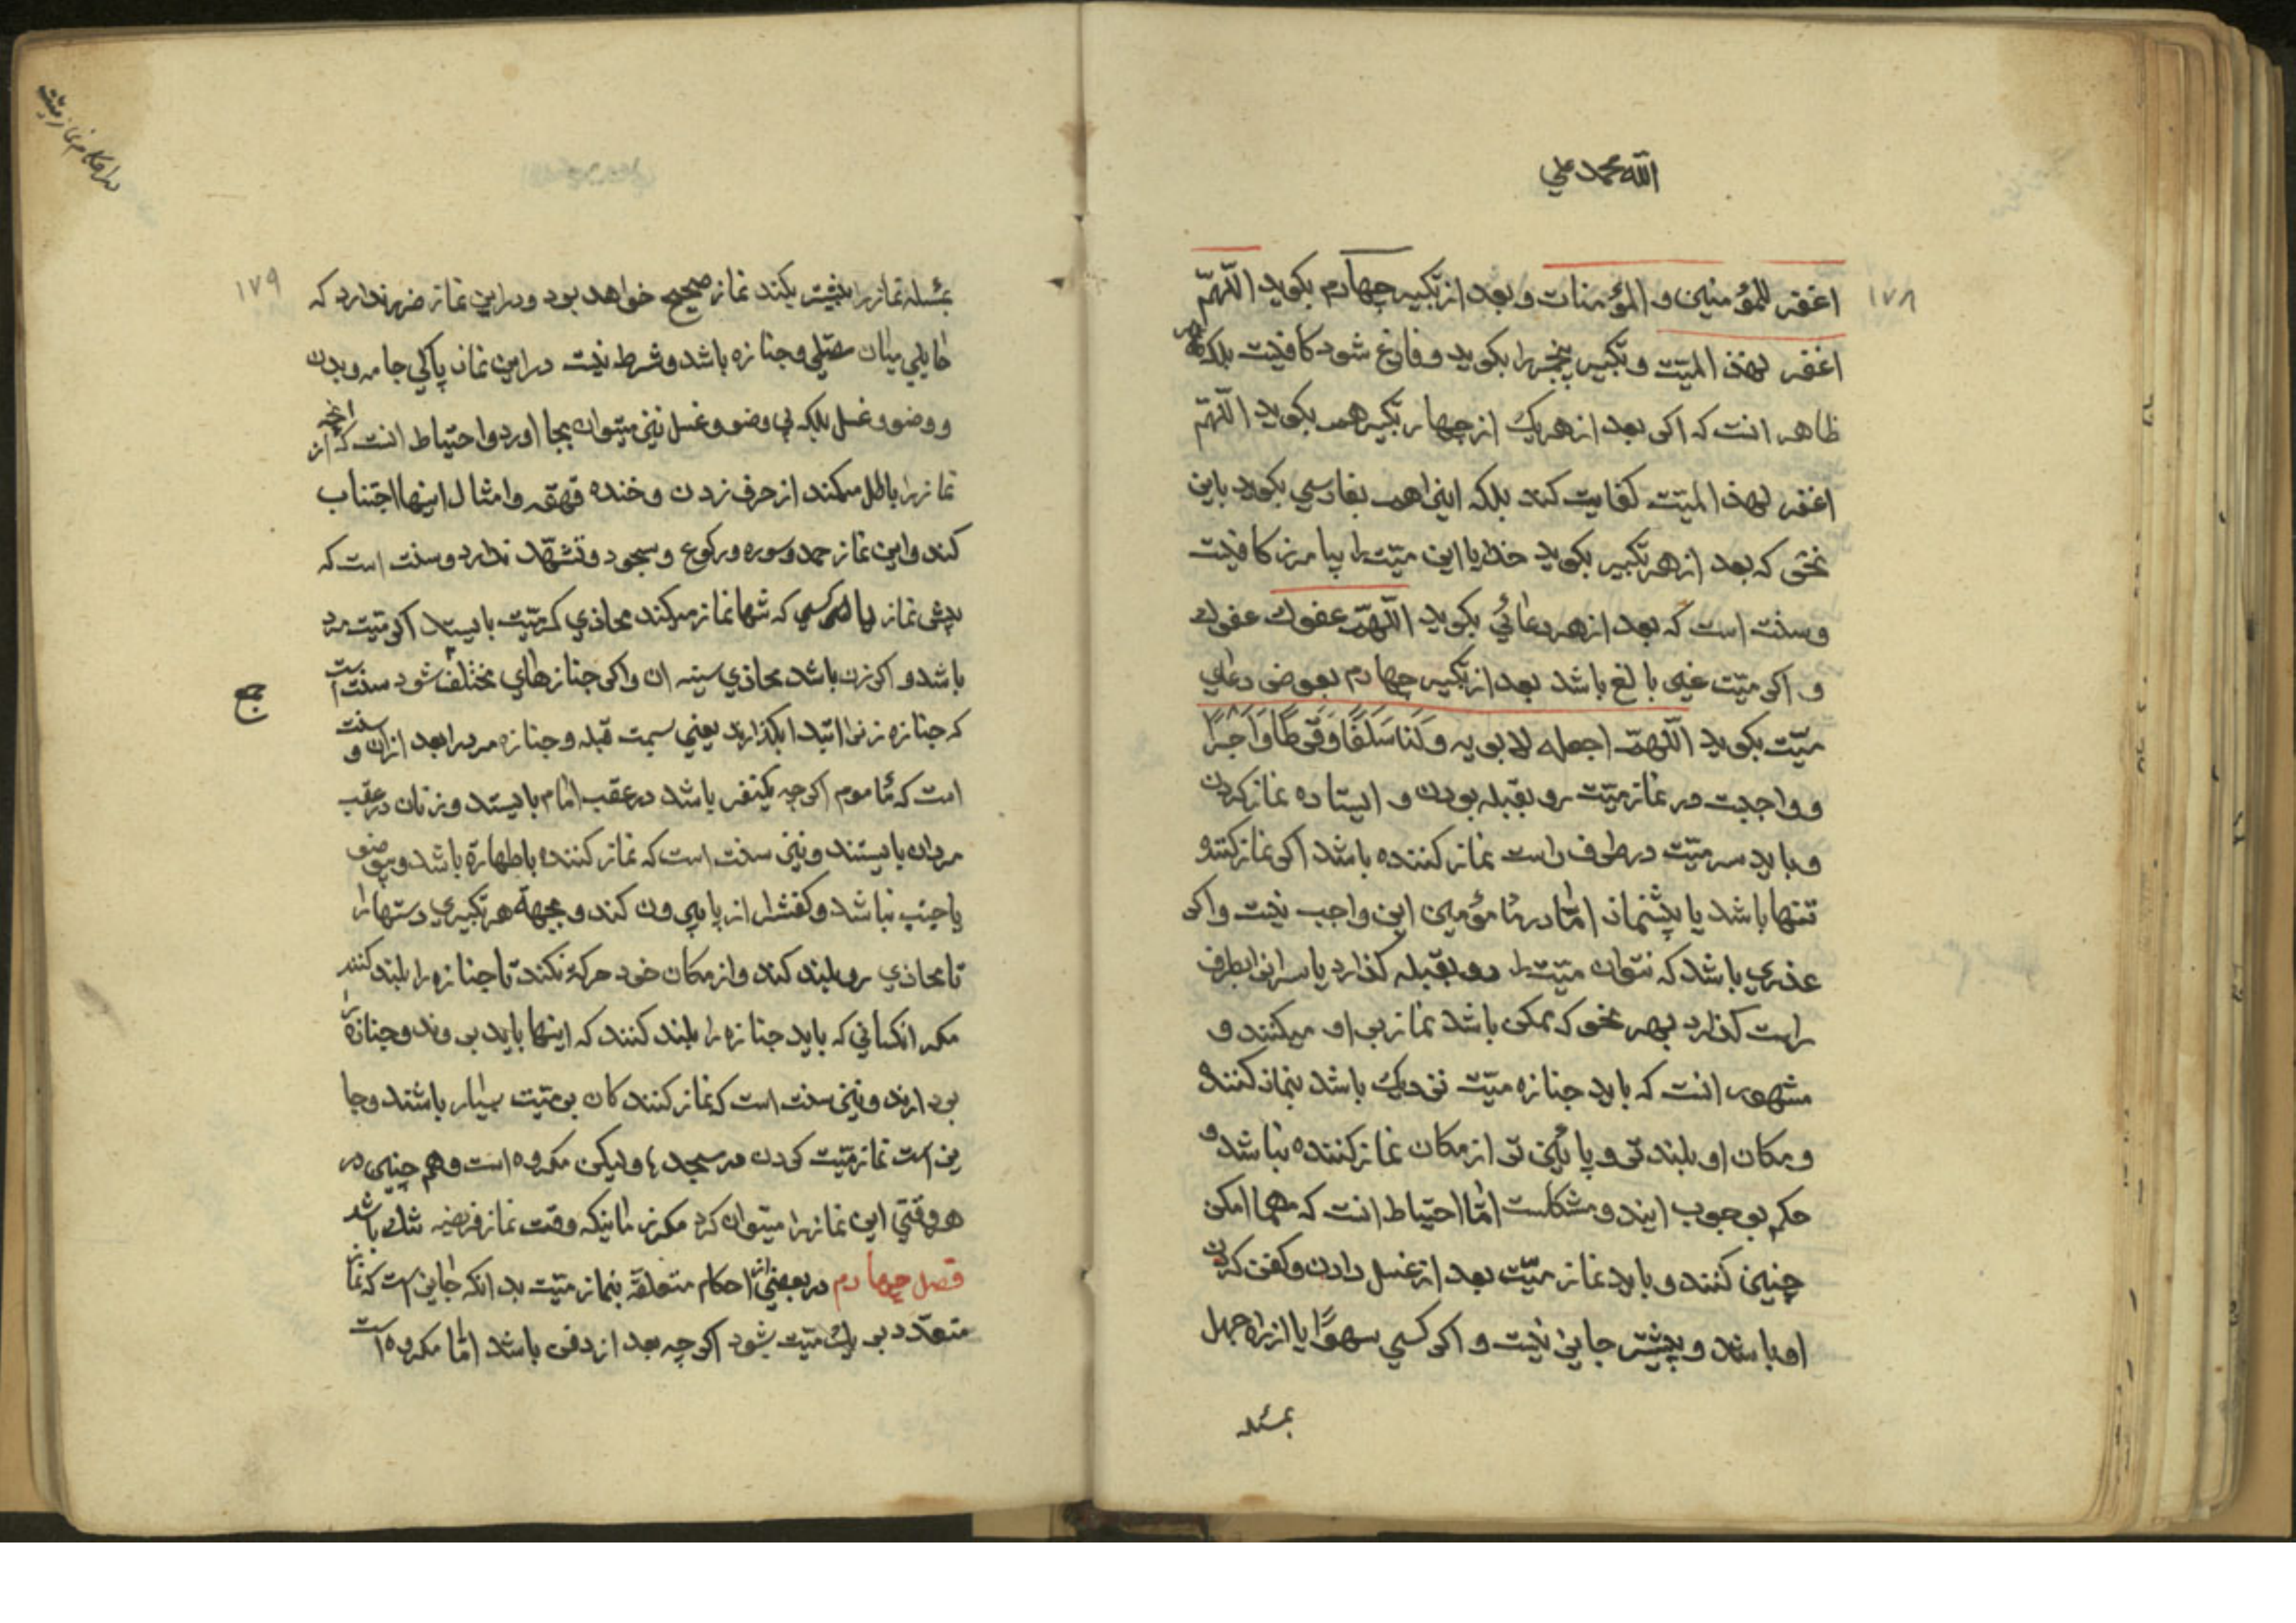 الله محمد علي
۱۷۸
اغفر للمؤمنین و المؤمنات و بعد از تکبیر چهارم بکوید اللّهمّ
اغفر لهذ المیّت و تکبیر پنجم را بکوید و فارغ شود کافیست بلکه
ظاهر انست که اکر بعد از هر یک از چهار تکبیر همه بکوید اللّهمّ
اغفر لهذ المیّت کفایت کند بلکه اینرا هم بفارسي بکوید باین
نحوی که بعد از هر تکبیر بکوید خدایا این میّت را بیامرز کافیست
و سنّت است که بعد از هر دعائي بکوید اللّهمّ عفوك عفوك
و اکر میّت غیر بالغ باشد بعد از تکبیر چهارم بعوض دعاي
میّت بکوید اللّهمّ اجعله لابویه وَلَنَا سَلَفًا وَفَرَطًا وَاَجرًا
و واجبست در نماز میّت رو بقبله بودن و ایستاده نماز کردن
و باید سر میّت در طرف راست نماز کننده باشد اکر نماز کننده
تنها باشد یا پیشنماز امّا در مأمؤمین این واجب نیست و اکر
عذري باشد که نتوان میّت را رو بقبله کذارد یا سر انرا بطرف
راست کذارد بهر نحو که ممکن باشد نماز بر او میکنند و
مشهور انست که باید جنازه میّت نزدیك باشد بنماز کننده
و مکان او بلند تر و پائین تر از مکان نماز کننده نباشد و
حکم بوجوب ایند و مشکلست امّا احتیاط انست که مهما امکن
چنین کنند و باید نماز میّت بعد از غسل دادن و کفن کردن
او باشد و پیشتر جایز نیست و اکر کسي سهوًا یا از راه جهل
بمسئله
در احکام نماز میّت
۱۷۹
بمسئله نماز را پیشتر بکند نماز صحیح خواهد بود و در این نماز ضرر ندارد که
حایلي میان مصلّي و جنازه باشد و شرط نیست در این نماز پاکي جامه و بدن
و وضو و غسل بلکه بي وضو و غسل نیز میتوان بجا اورد و احتیاط انست که از انچه
نماز را باطل میکند از حرف زدن و خنده قهقه و امثال اینها اجتناب
کند و این نماز حمد و سوره و رکوع و سجود و تشهّد ندارد و سنت است که
پیش نماز یا کسي که تنها نماز میکند محاذي کمر میّت بایستد اکر میّت مرد
باشد و اکر زن باشد محاذي سینه ان و اکر جنازهاي مختلف شود سنّت است
جمع
که جنازه زنرا ابتدا بکذارید یعني سمت قبله و جنازه مرد را بعد از ان و سنت
است که مأموم اکر چه یکنفر باشد در عقب امام بایستد و زنان در عقب
مردان بایستند و نیز سنت است که نماز کننده با طهارة باشد و بي وضو
یا جنب نباشد و کفش را از پا بیرون کند و بجهة هر تکبیري دستها را
تا محاذي رو بلند کند و از مکان خود حرکة نکند تا جنازه را بلند کنند
مکر انکساني که باید جنازه را بلند کنند که اینها باید بروند و جنازه را
بردارند و نیز سنت است که نماز کنندکان بر میّت بسیار باشند و جا
یز است نماز میّت کردن در مسجد ها و لیکن مکروه است و هم چنین در
هر وقتي این نماز را میتوان کرد مکر زمانیکه وقت نماز فریضه تنك باشد
فصل چهارم در بعضي از احکام متعلقه بنماز میّت بدانکه جایز است که نماز
متعدّد بر یك میّت بشود اکر چه بعد از دفن باشد امّا مکروه است